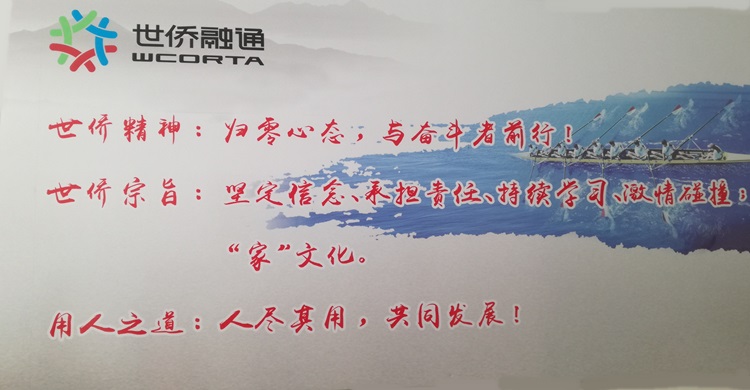 世侨融通
WCORTA
世侨精神：归零心态，与奋斗者前行！
世侨宗旨：坚定信念、承担责任、持续学习、激情碰撞：
“家”文化。
用人之道：人尽其用，共同发展！